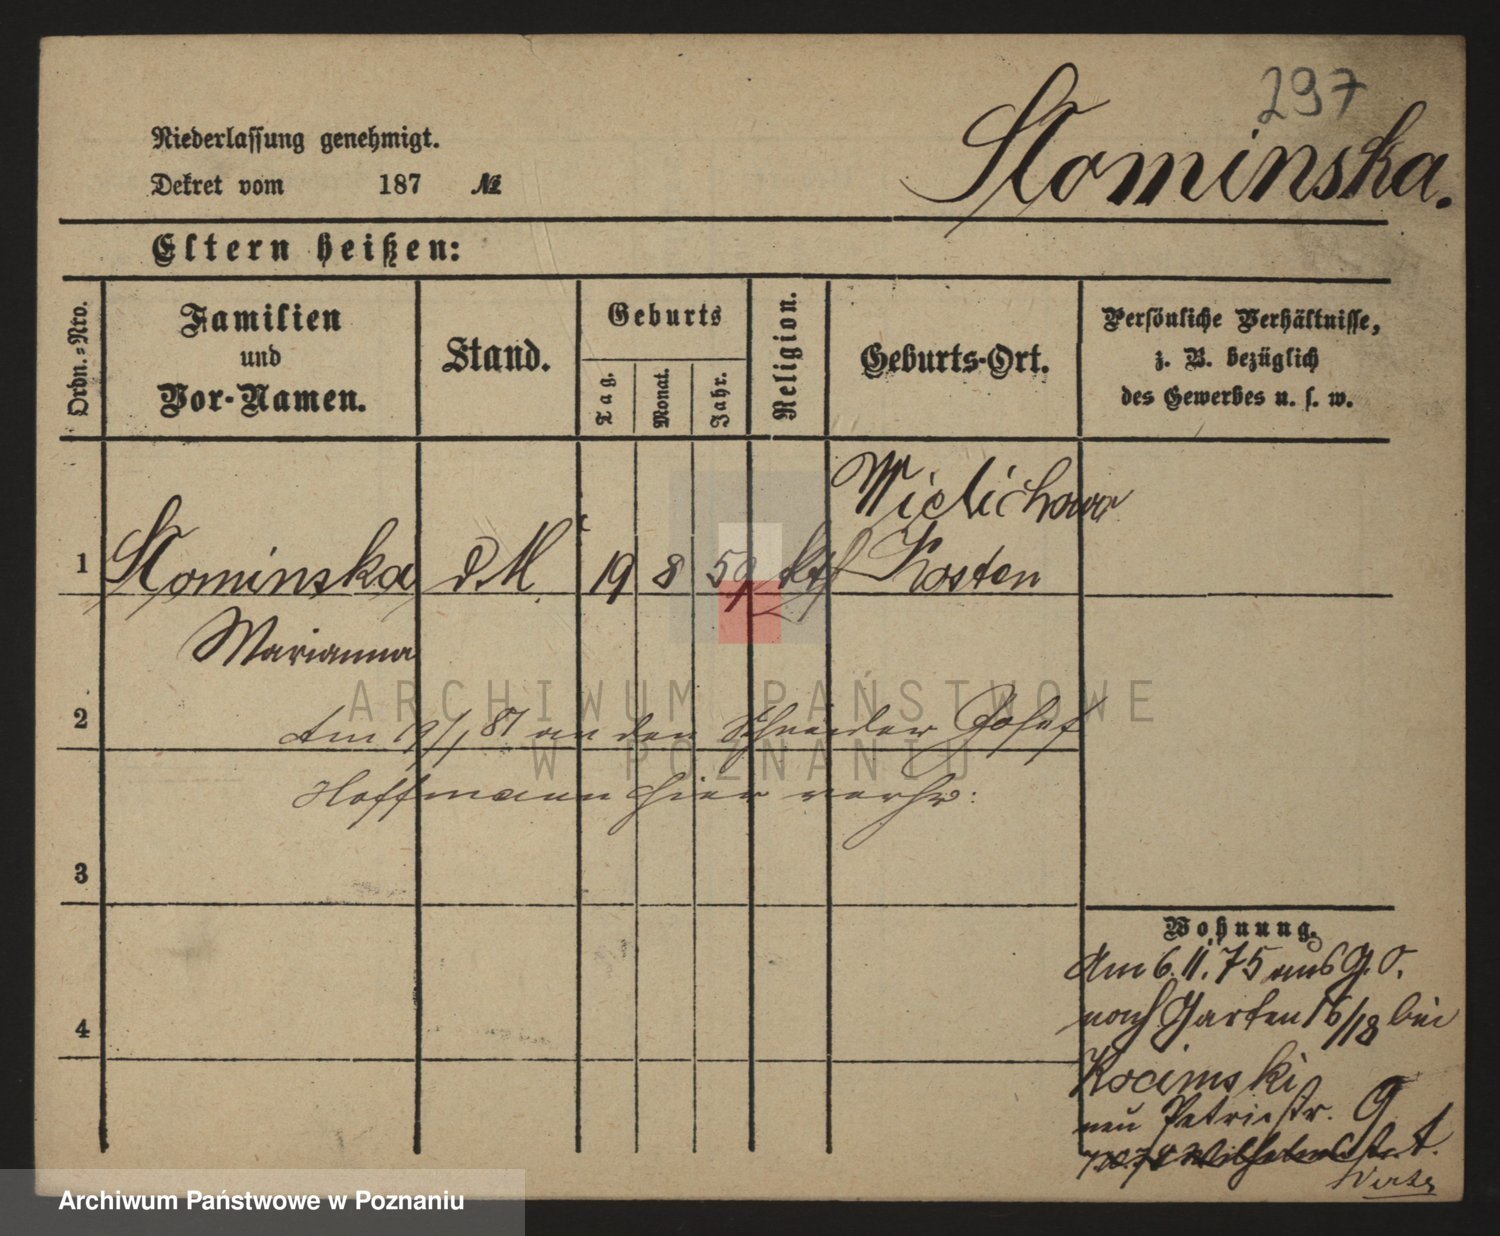 297
Słominska.
Niederlassung genehmigt.
Dekret vom 187 №
Eltern heißen:
Ordn.=Nro.
Familien
und
Vor-Namen.
Stand.
Geburts
Tag.
Monat.
Jahr.
Religion.
Geburts-Ort.
Persönliche Verhältnisse,
z. B. bezüglich
des Gewerbes u. s. w.
Wielichowo
1 Słominska dM. 19 8 59 kth Kosten
Marianna
ARCHIWUM PAŃSTWOWE
W POZNANIU
2 Am 19/1 81 an den Schneider Josef
Hoffmann hier verh:
3
4
Wohnung.
Am 6.11.75 aus G. O.
nach Garten 16/18 bei
Kocimski
neu Petristr. 9
Archiwum Państwowe w Poznaniu